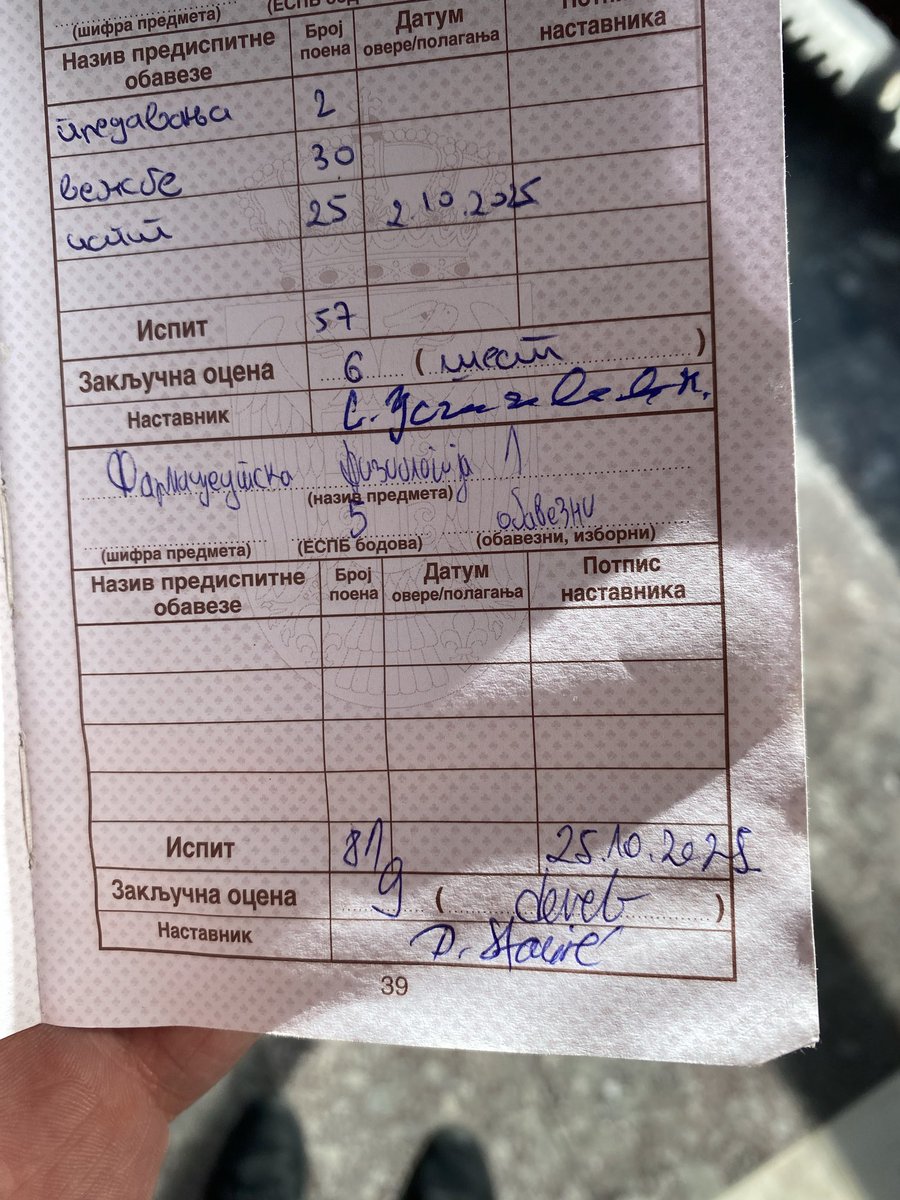 (шифра предмета) (ЕСПБ
Назив предиспитне обавезе Број поена Датум овере/полагања наставника
предавања 2
вежбе 30
испит 25 2.10.2025
Испит 57
Закључна оцена 6 (шест)
Наставник
Фармацеутска физиологија 1
(назив предмета)
5 обавезни
(шифра предмета) (ЕСПБ бодова) (обавезни, изборни)
Назив предиспитне обавезе Број поена Датум овере/полагања Потпис наставника
Испит 81 25.10.2025
Закључна оцена 9 (devet)
Наставник
39